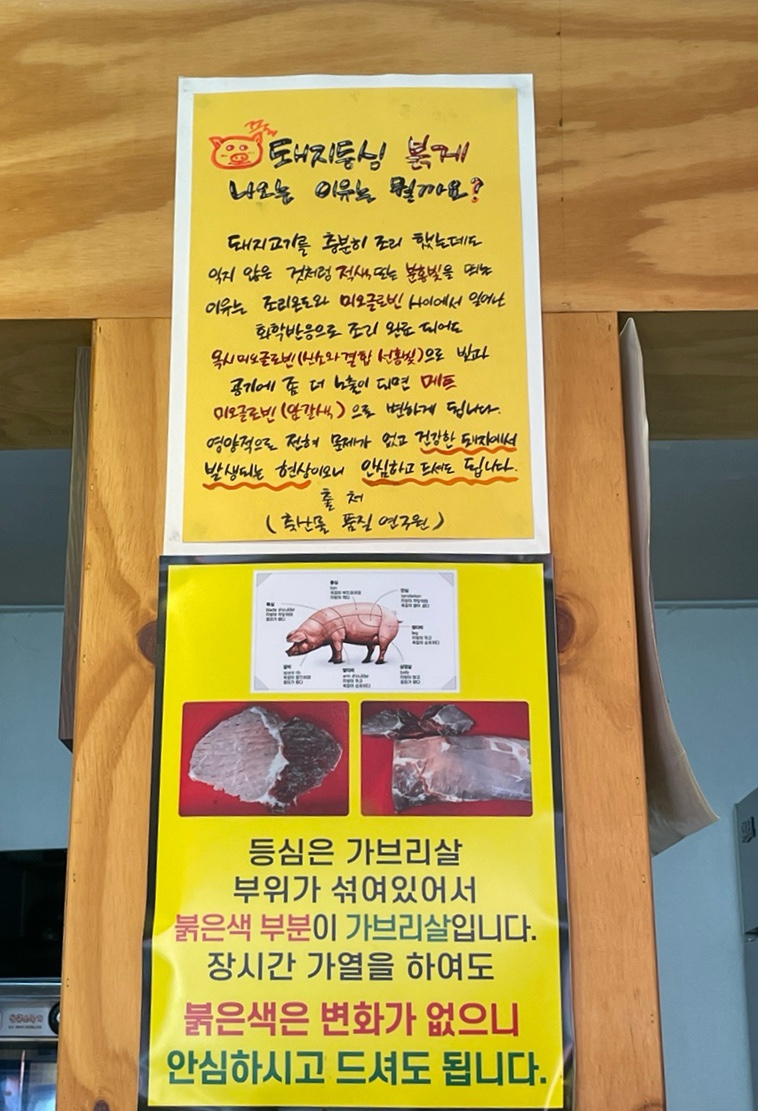 돼지등심 붉게
나오는 이유는 뭘까요?
돼지고기를 충분히 조리 했는데도
익지 않은 것처럼 적색 또는 분홍빛을 띄는
이유는 조리온도와 미오글로빈 사이에서 일어난
화학반응으로 조리 완료 되어도
옥시미오글로빈(산소와결합 선홍빛)으로 빛과
공기에 좀 더 노출이 되면 메트
미오글로빈(암갈색)으로 변하게 됩니다.
영양적으로 전혀 문제가 없고 건강한 돼지에서
발생되는 현상이오니 안심하고 드셔도 됩니다.
출처
(축산물 품질 연구원)
등심
안심
목심
뒷다리
갈비
앞다리
삼겹살
등심은 가브리살
부위가 섞여있어서
붉은색 부분이 가브리살입니다.
장시간 가열을 하여도
붉은색은 변화가 없으니
안심하시고 드셔도 됩니다.